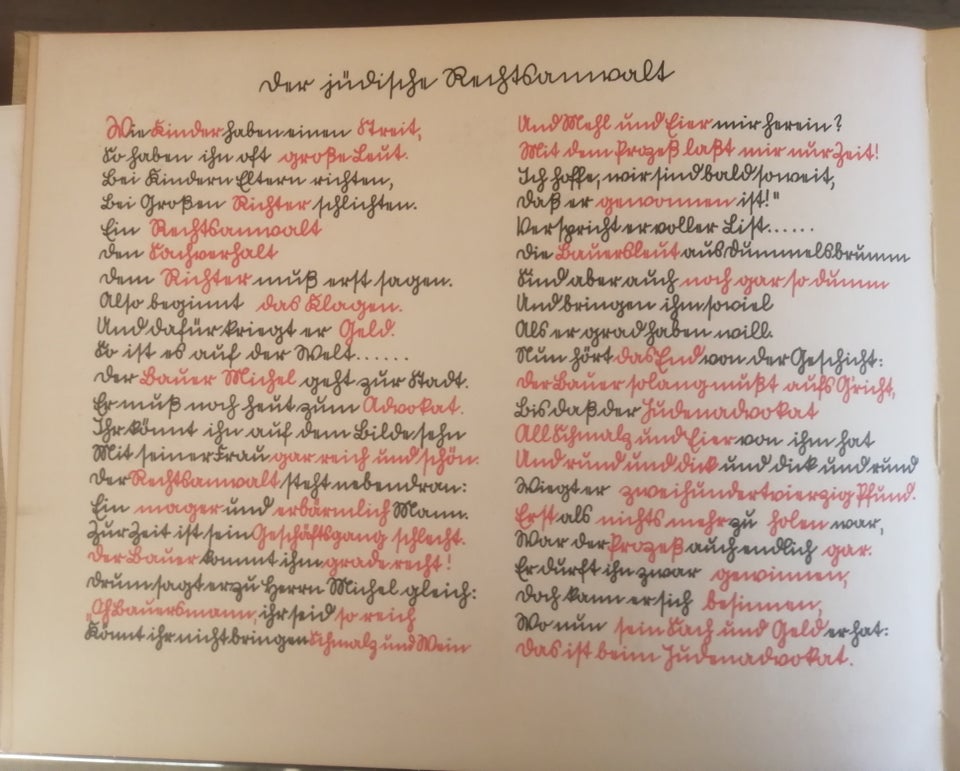 Der jüdische Rechtsanwalt
Wie Kinder haben einen Streit,
So haben ihn oft große Leut.
Bei Kindern Eltern richten,
Bei Großen Richter schlichten.
Ein Rechtsanwalt
den Sachverhalt
dem Richter muß erst sagen.
Also beginnt das Klagen.
Und dafür kriegt er Geld.
So ist es auf der Welt......
Der Bauer Michel geht zur Stadt.
Er muß noch heut zum Advokat.
Ihr könnt ihn auf dem Bilde sehn
Mit seiner Frau gar reich und schön.
Der Rechtsanwalt steht nebendran:
Ein mager und erbärmlich Mann.
Zur Zeit ist sein Geschäftsgang schlecht.
Der Bauer kommt ihm grade recht!
Drum sagt er zu Herrn Michel gleich:
„Och Bauersmann, ihr seid so reich
Könnt ihr nicht bringen Schmalz und Wein
Und Mehl und Eier mir herein?
Mit dem Prozeß laßt mir nur Zeit!
Ich hoffe, wir sind bald soweit,
Daß er gewonnen ist!"
Verspricht er voller List......
Die Bauersleut aus Dummelsbrumm
Sind aber auch noch gar so dumm
Und bringen ihm soviel
Als er grad haben will.
Nun hört das End von der Geschicht:
Der Bauer solang mußt aufs G'richt,
Bis daß der Judenadvokat
All Schmalz und Eier von ihm hat
Und rund und dick und dick und rund
Wiegt er zweihundertvierzig Pfund.
Erst als nichts mehr zu holen war,
War der Prozeß auch endlich gar.
Er durft ihn zwar gewinnen,
Doch kann er sich besinnen,
Wo nun sein Sach und Geld er hat:
Das ist beim Judenadvokat.